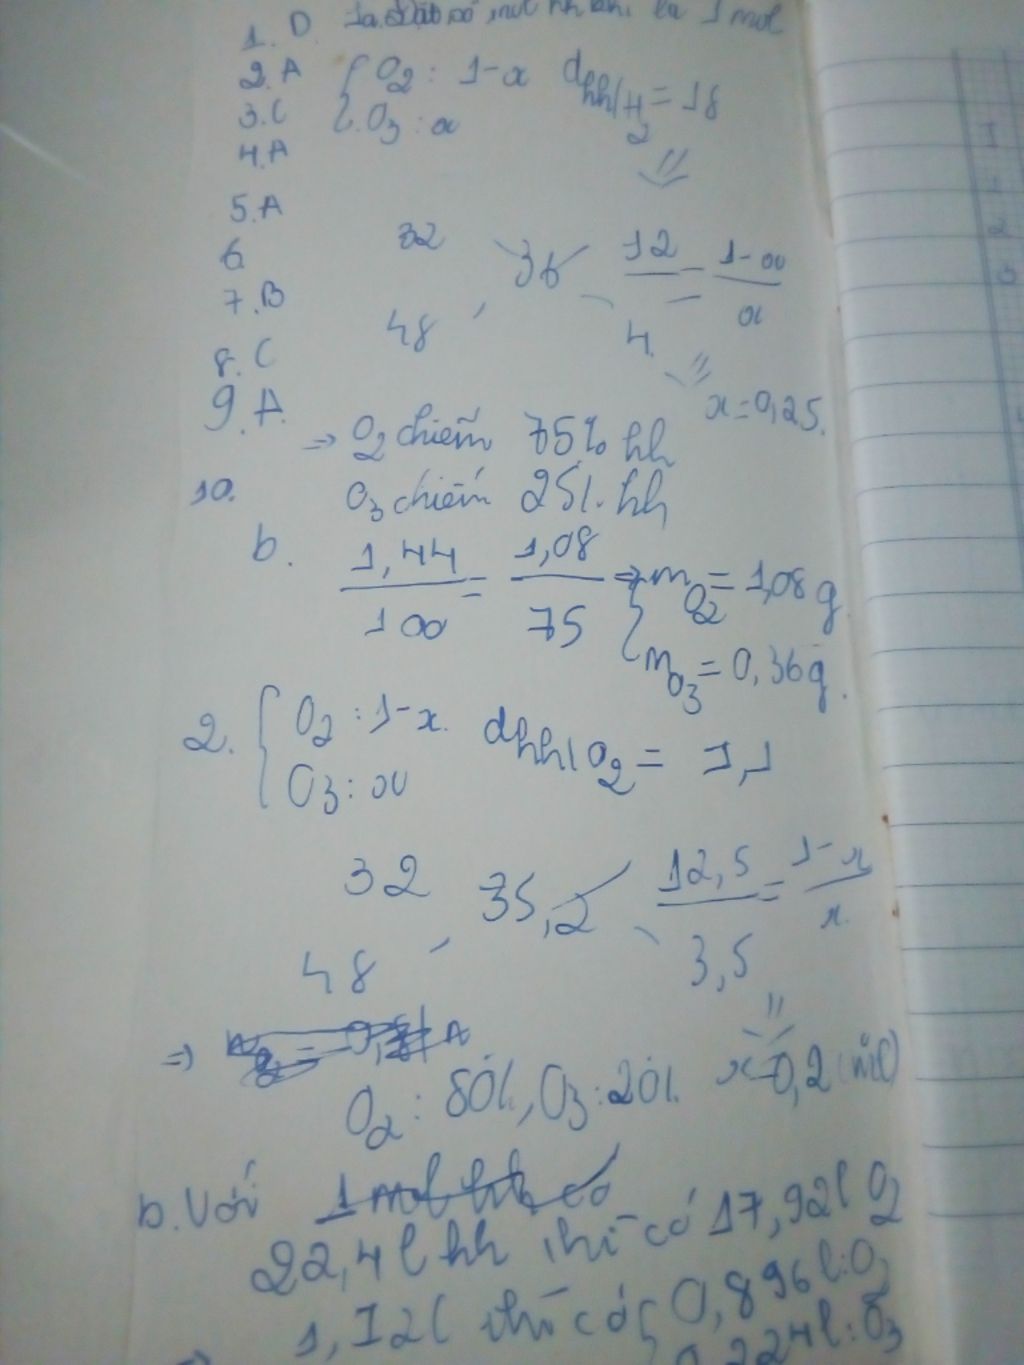 1. D 1a. Đặt số mol hh khí là 1 mol
2. A { O2 : 1-x d hh/H2 = 18
3. C { O3 : x
4. A
5. A
6
7. B
8. C
9. A.
10.
32 36 12/4 = 1-x/x
48
x = 0,25.
=> O2 chiếm 75% hh
O3 chiếm 25% hh
b. 1,44/100 = 1,08/75 => { mO2 = 1,08g
{ mO3 = 0,36g.
2. { O2 : 1-x. d hh/O2 = 1,1
{ O3 : x
32 35,2 12,5/3,5 = 1-x/x.
48
x = 0,2 (mol)
=>
O2 : 80%, O3 : 20%.
b. Với 1 mol hh có
22,4 l hh thì có 17,92 l O2
1,12 l thì có { 0,896 l : O2
0,224 l : O3